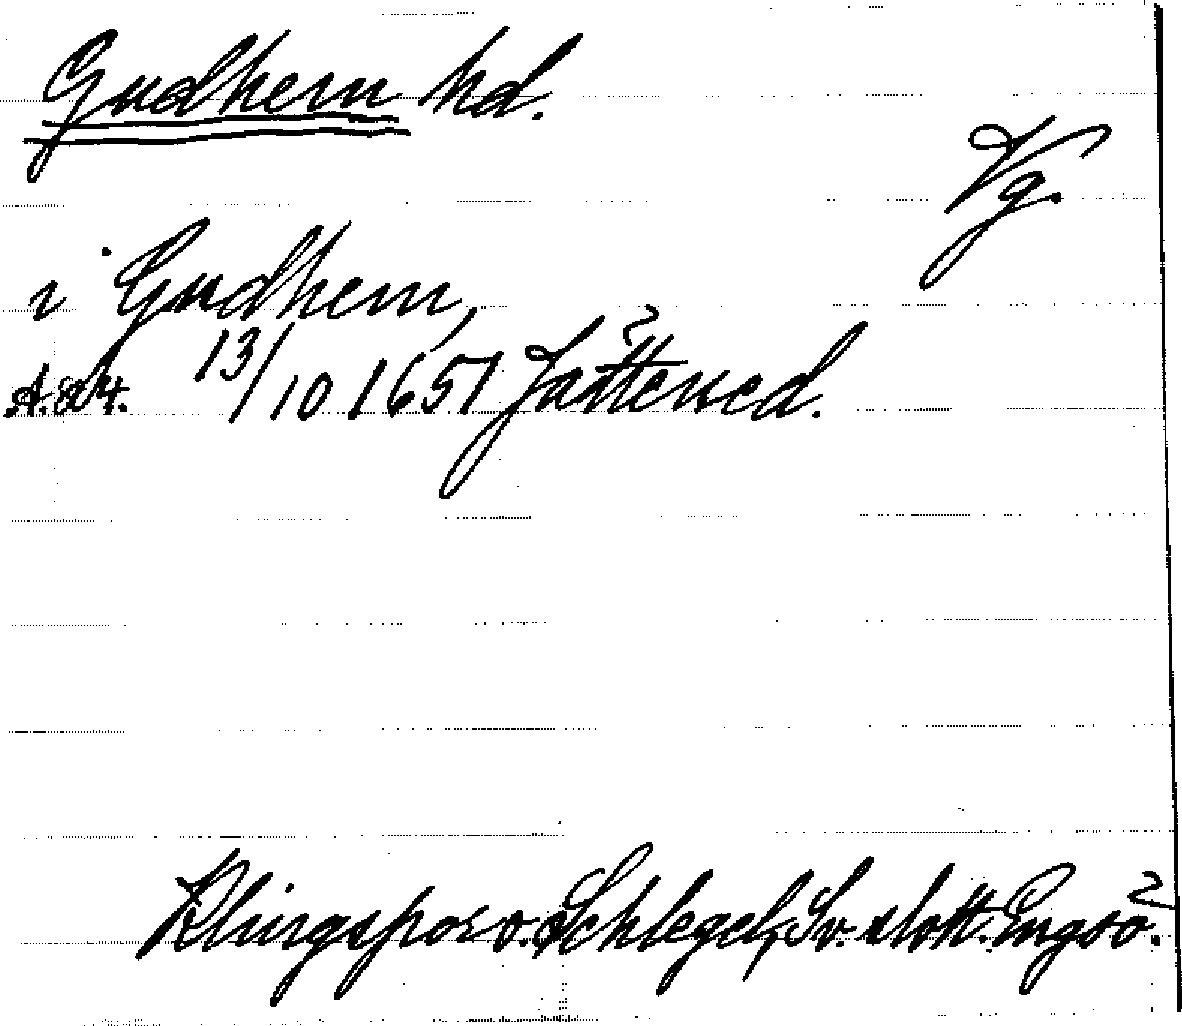 Gudhem hd.
Vg.
i Gudhem,
13/10 1651 Jättened.
Klingspor o. Schlegel, Sv. slott. Engsö.